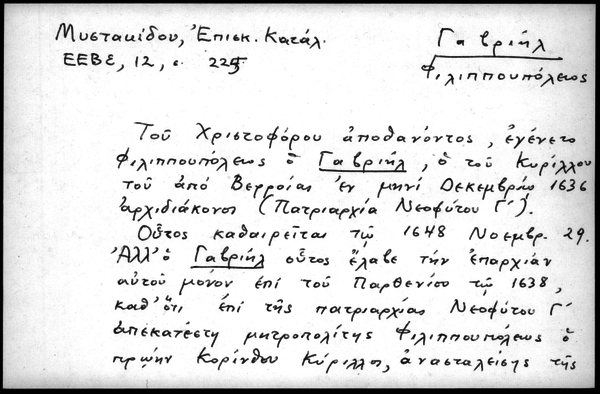 Μυστακίδου, Ἐπισκ. Κατάλ.
ΕΕΒΣ, 12, σ. 225
Γαβριήλ
Φιλιππουπόλεως
Τοῦ Χριστοφόρου ἀποθανόντος, ἐγένετο
Φιλιππουπόλεως ὁ Γαβριήλ, ὁ τοῦ Κυρίλλου
τοῦ ἀπό Βερροίας ἐν μηνί Δεκεμβρίῳ 1636
ἀρχιδιάκονος (Πατριαρχία Νεοφύτου Γ΄).
Οὗτος καθαιρεῖται τῷ 1648 Νοεμβρ. 29.
Ἀλλ' ὁ Γαβριήλ οὗτος ἔλαβε τήν ἐπαρχίαν
αὐτοῦ μόνον ἐπί τοῦ Παρθενίου τῷ 1638,
καθ' ὅτι ἐπί τῆς πατριαρχίας Νεοφύτου Γ΄
ἀπεκατέστη μητροπολίτης Φιλιππουπόλεως ὁ
πρώην Κορίνθου Κύριλλος, ἀνασταλείσης τῆς